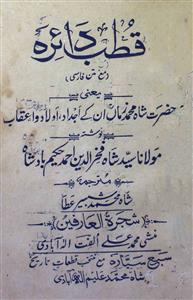 قطب دائرہ
(مع متن فارسی)
یعنی
حضرت شاہ محمد زماں ان کے اجداد، اولاد و اعقاب
نوشتہ
مولانا سید شاہ فخرالدین احمد حکیم بادشاہ
مترجمہ
شاہ محمد شبیر عطا
شجرۃ العارفین
منشی محمد علی الفت الہ آبادی
سبع سیارہ مع منتخب قطعات تاریخ
شاہ محمد علیم الہ آبادی